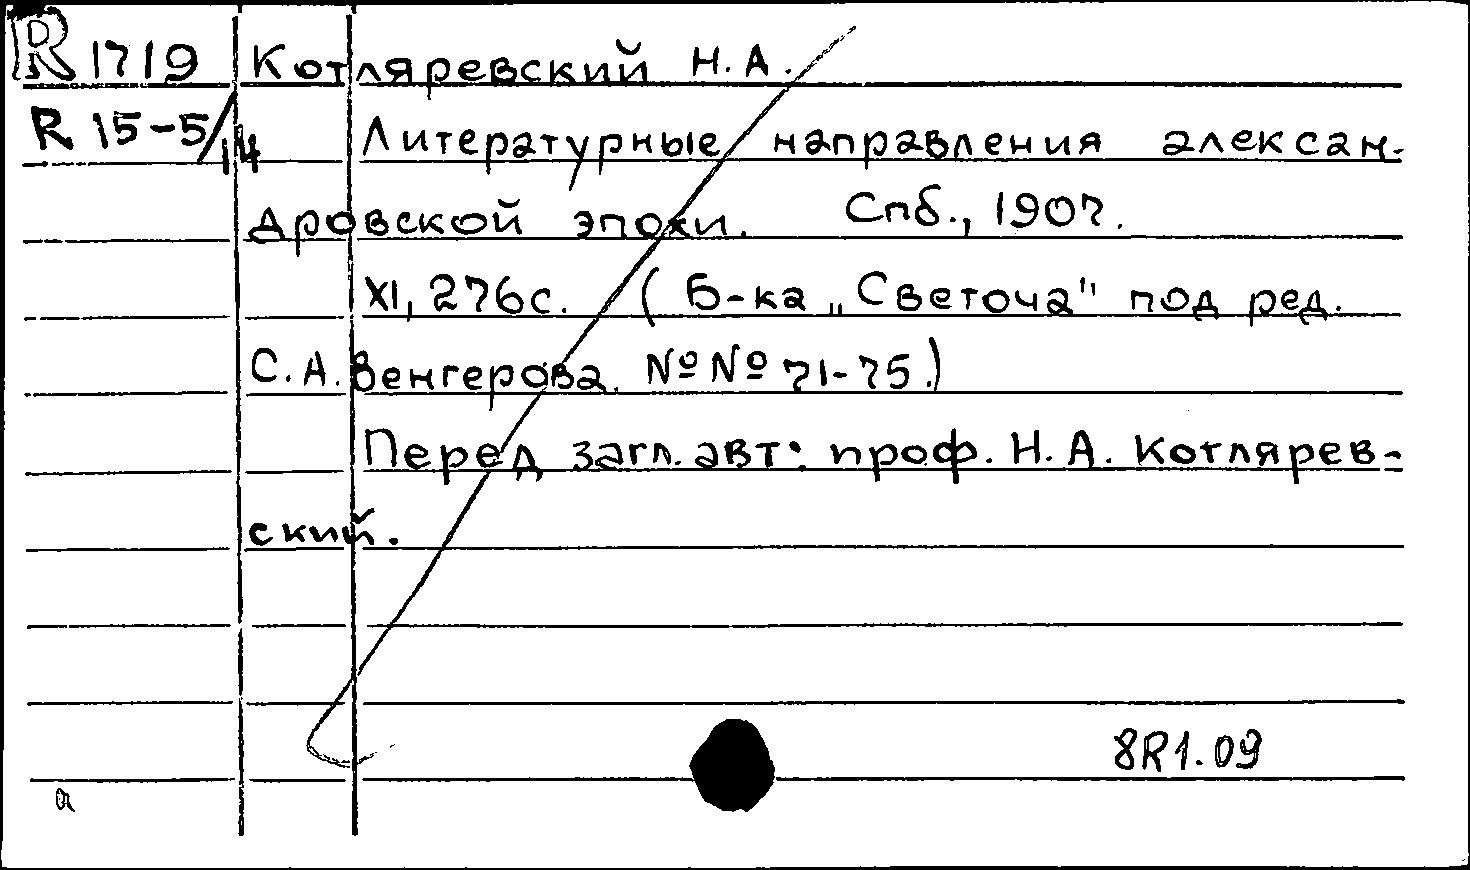 R 1719 Котляревский Н.А.
R 15-5/14 Литературные направления алексан-
дровской эпохи. Спб., 1907.
XI, 276с. (Б-ка „Светоча" под ред.
С.А. Венгерова. №№ 71-75.)
Перед загл. авт: проф. Н.А. Котлярев-
ский.
8R1.09
а